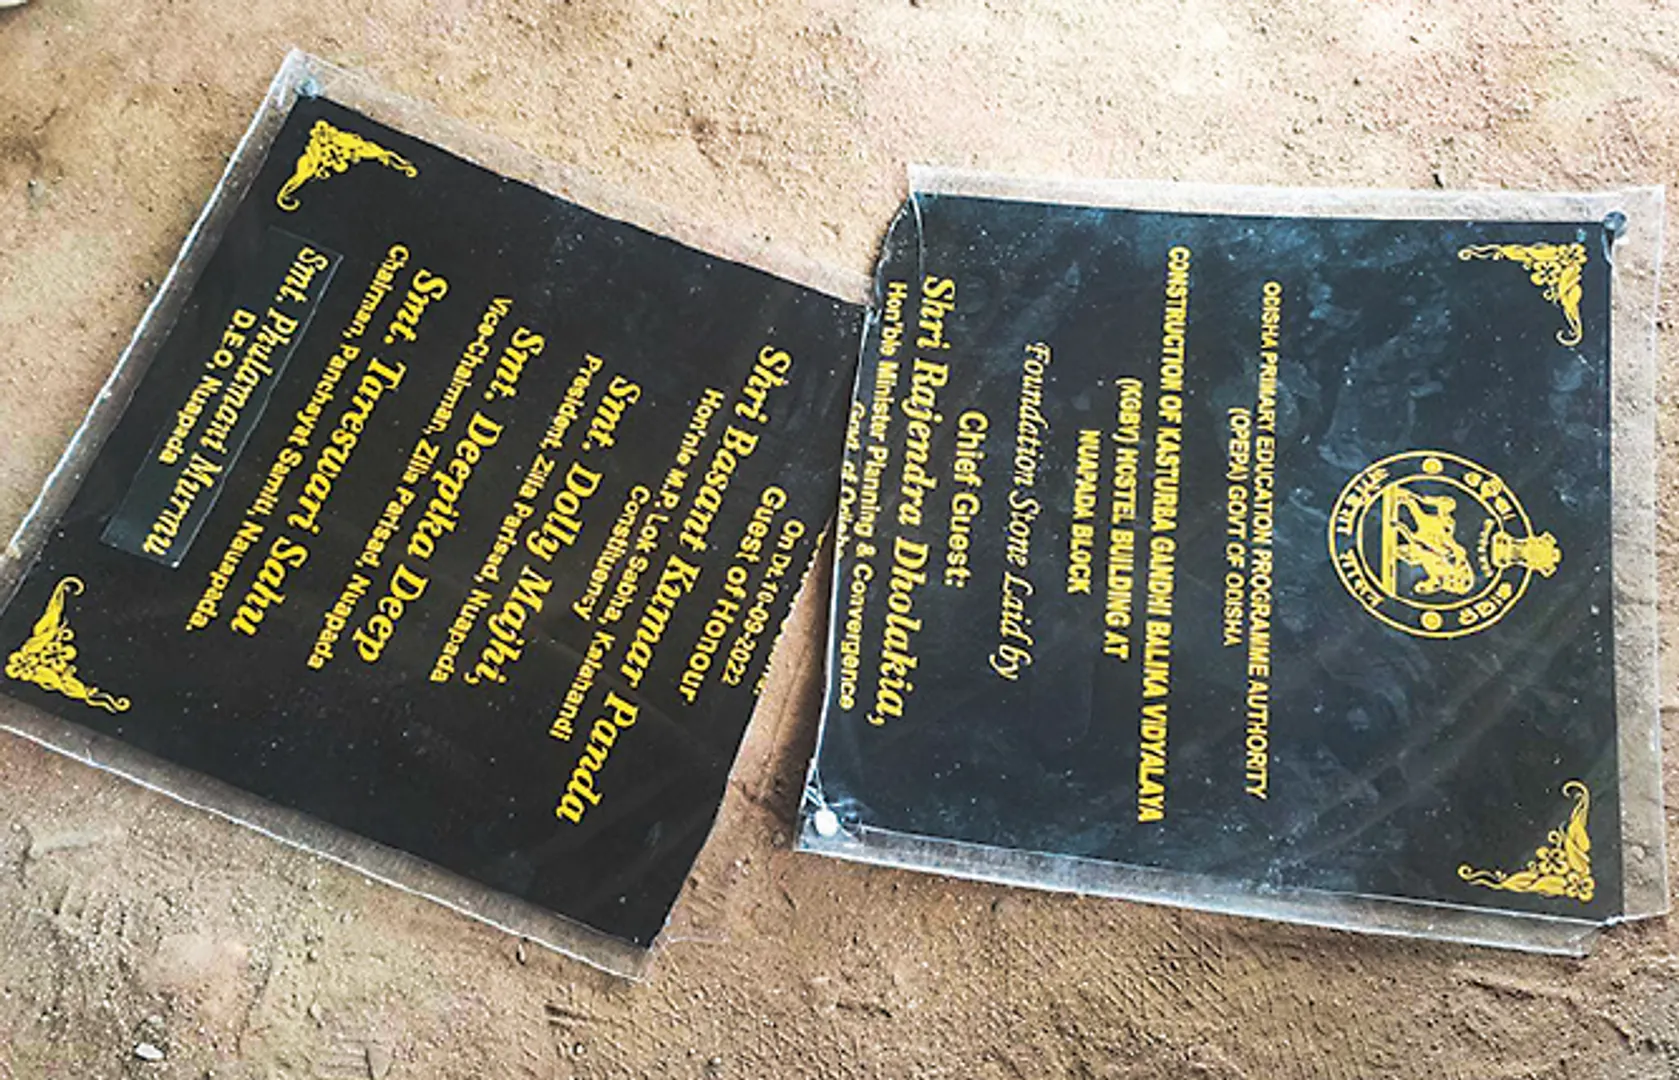 ODISHA PRIMARY EDUCATION PROGRAMME AUTHORITY
(OPEPA) GOVT OF ODISHA
CONSTRUCTION OF KASTURBA GANDHI BALIKA VIDYALAYA
(KGBV) HOSTEL BUILDING AT
NUAPADA BLOCK
Foundation Stone Laid by
Chief Guest:
Shri Rajendra Dholakia,
Hon'ble Minister Planning & Convergence
Govt. of
On Dt.16-09-2022
Guest of Honour
Shri Basant Kumar Panda
Hon'nle M.P. Lok Sabha, Kalahandi
Constituency
Smt. Dolly Majhi,
President, Zilla Parisad, Nuapada
Smt. Deepika Deep
Vice-Chairman, Zilla Parisad, Nuapada
Smt. Tareswari Sahu
Chairman, Panchayat Samiti, Nauapada.
Smt. Phulamani Murmu
D.E.O, Nuapada